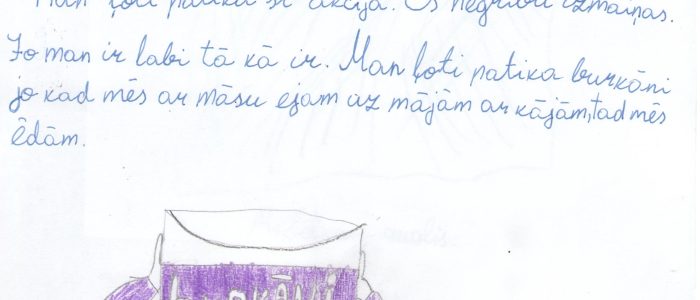 Man ļoti patika šī akcija. Es negribu izmaiņas.
Jo man ir labi tā kā ir. Man ļoti patika burkāni
jo kad mēs ar māsu ejam uz mājām ar kājām, tad mēs
ēdām.
burkāni